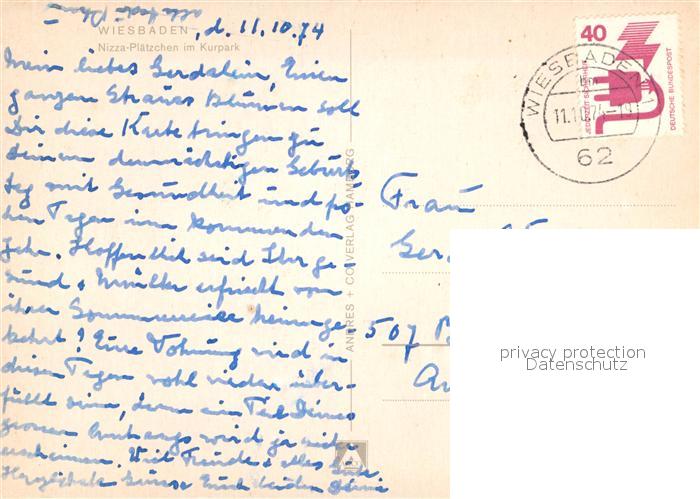 WIESBADEN, d. 11.10.74
Nizza-Plätzchen im Kurpark
Mein liebes Gerdalein, Einen
ganzen Strauss Blumen soll
Dir diese Karte bringen zu
Deinem demnächstigen Geburts
tag mit Gesundheit und fro-
hen Tagen im kommenden
Jahr. Hoffentlich seid Ihr ge-
sund + Mutter erfrischt von
ihrer Sommerreise heimge-
kehrt! Eure Wohnung wird in
diesen Tagen wohl wieder über-
füllt sein, denn ein Teil Deines
grossen Anhangs wird ja
erscheinen. Viel Freude + alles Gute
Herzlichste Grüsse Euch beiden Deine
ANDRES + CO VERLAG HAMBURG
40
JEDERZEIT SICHERHEIT
DEUTSCHE BUNDESPOST
WIESBADEN 1
11.10.74-19
62
Frau
Ger
507
privacy protection
Datenschutz